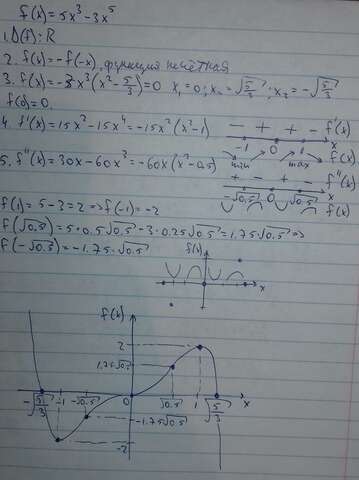 f(x)=5x³-3x⁵
1. D(f): R
2. f(x)=-f(-x), функция нечётная
3. f(x)=-3x³(x²-5/3)=0 x₁=0; x₂=√(5/3); x₃=-√(5/3)
f(0)=0.
4. f'(x)=15x²-15x⁴=-15x²(x²-1)
- + + - f'(x)
-1 0 1 x
min max f(x)
5. f''(x)=30x-60x³=-60x(x²-0.5)
+ - + - f''(x)
-√0.5 0 √0.5 x
f(x)
f(1)=5-3=2 ⇒ f(-1)=-2
f(√0.5)=5·0.5√0.5-3·0.25√0.5=1.75·√0.5 ⇒
f(-√0.5)=-1.75·√0.5
f(x)
x
f(x)
2
1.75√0.5
-√(5/3) -1 -√0.5 0 √0.5 1 √(5/3) x
-1.75√0.5
-2